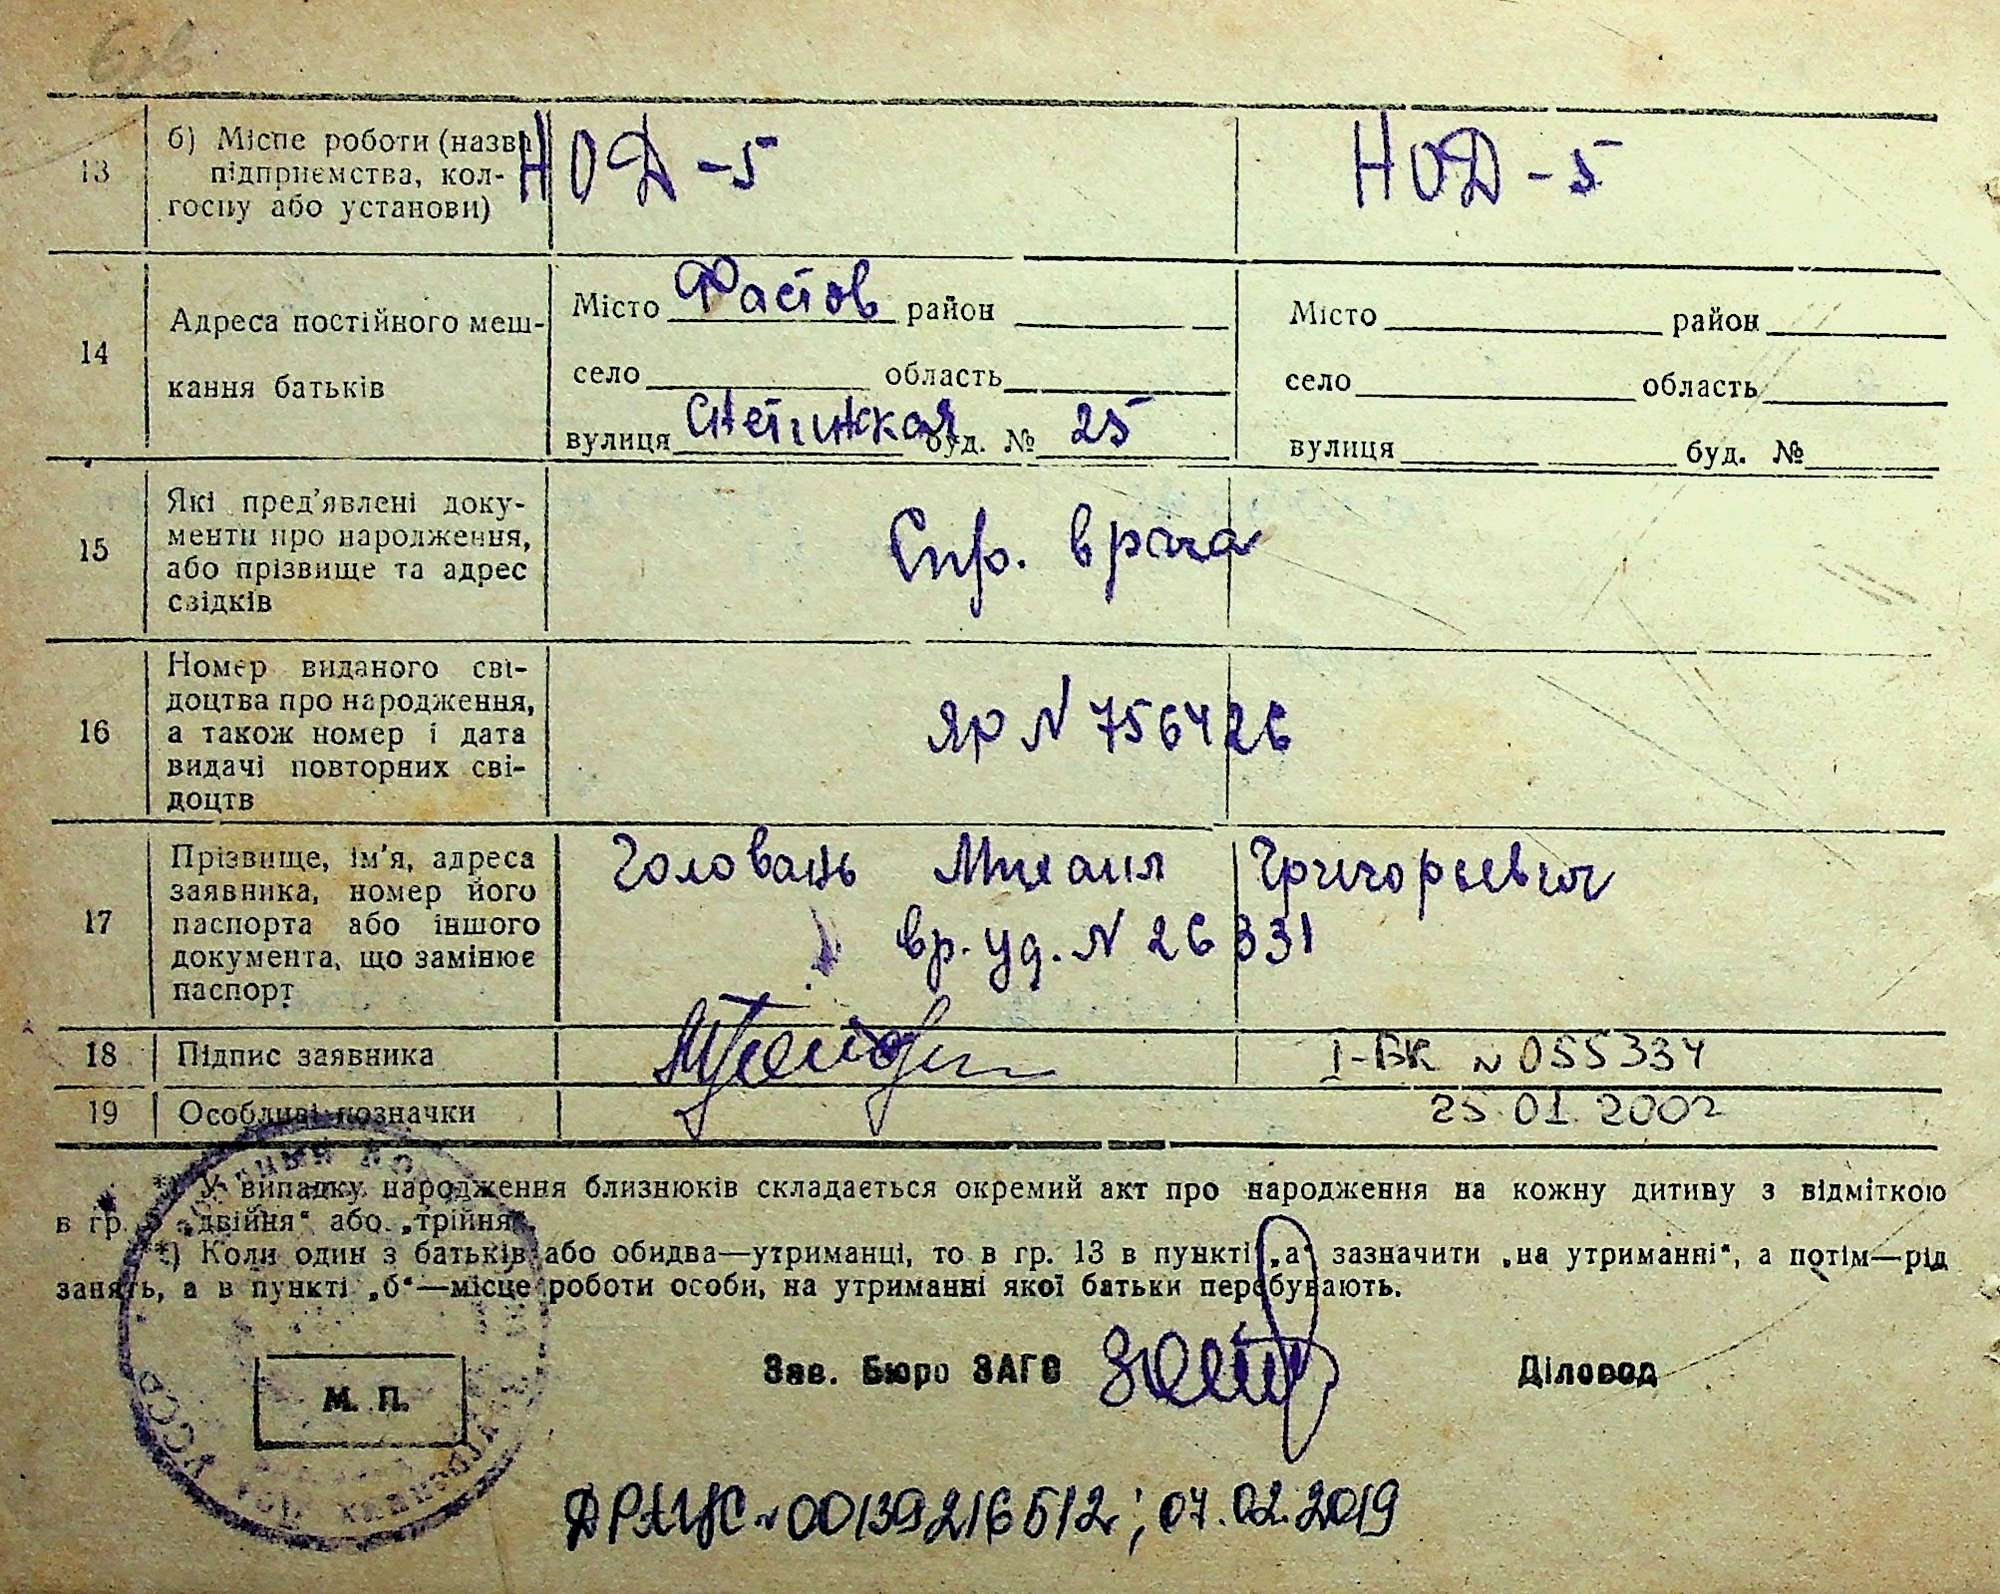 13
б) Місце роботи (назва
підприємства, кол-
госпу або установи)
НОД-5
НОД-5
14
Адреса постійного меш-
кання батьків
Місто Фастов район
село область
вулиця буд. № 25
Місто район
село область
вулиця буд. №
15
Які пред'явлені доку-
менти про народження,
або прізвище та адрес
свідків
Спр. врача
16
Номер виданого сві-
доцтва про народження,
а також номер і дата
видачі повторних сві-
доцтв
ЯР N 756426
17
Прізвище, ім'я, адреса
заявника, номер його
паспорта або іншого
документа, що замінює
паспорт
Головань Михаил Григорьевич
вр. уд. N 26331
18
Підпис заявника
I-БК N 055334
19
Особливі позначки
25.01.2002
*) У випадку народження близнюків складається окремий акт про народження на кожну дитину з відміткою
в гр. „двійня“ або „трійня“.
*) Коли один з батьків або обидва—утриманці, то в гр. 13 в пункті „а“ зазначити „на утриманні“, а потім—рід
занять, а в пункті „б“—місце роботи особи, на утриманні якої батьки перебувають.
М. П.
УССР
Зав. Бюро ЗАГС
Діловод
ДРАЦС N 00139216512; 07.02.2019